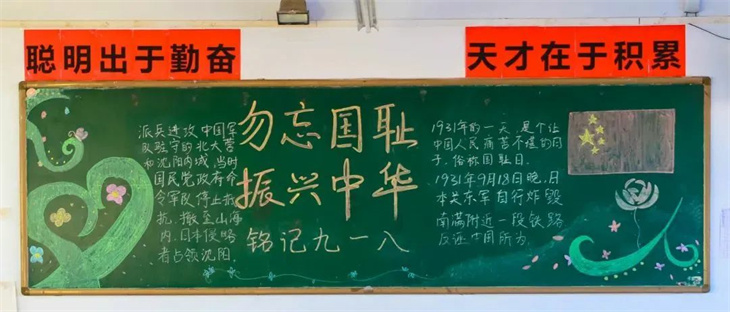 聪明出于勤奋
天才在于积累
派兵进攻中国军
队驻守的北大营
和沈阳内城,当时
国民党政府命
令军队停止抵
抗,撤至山海
内,日本侵略
者占领沈阳.
勿忘国耻
振兴中华
铭记九一八
1931年的一天,是个让
中国人民痛苦不堪的日
子,俗称国耻日.
1931年9月18日晚,日
本关东军自行炸毁
南满附近一段铁路
反诬中国所为.